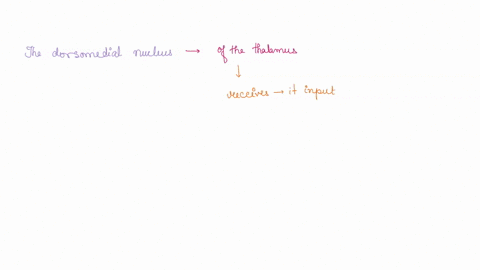 The dorsomedial nucleus → of the thalamus
↓
receives → it input